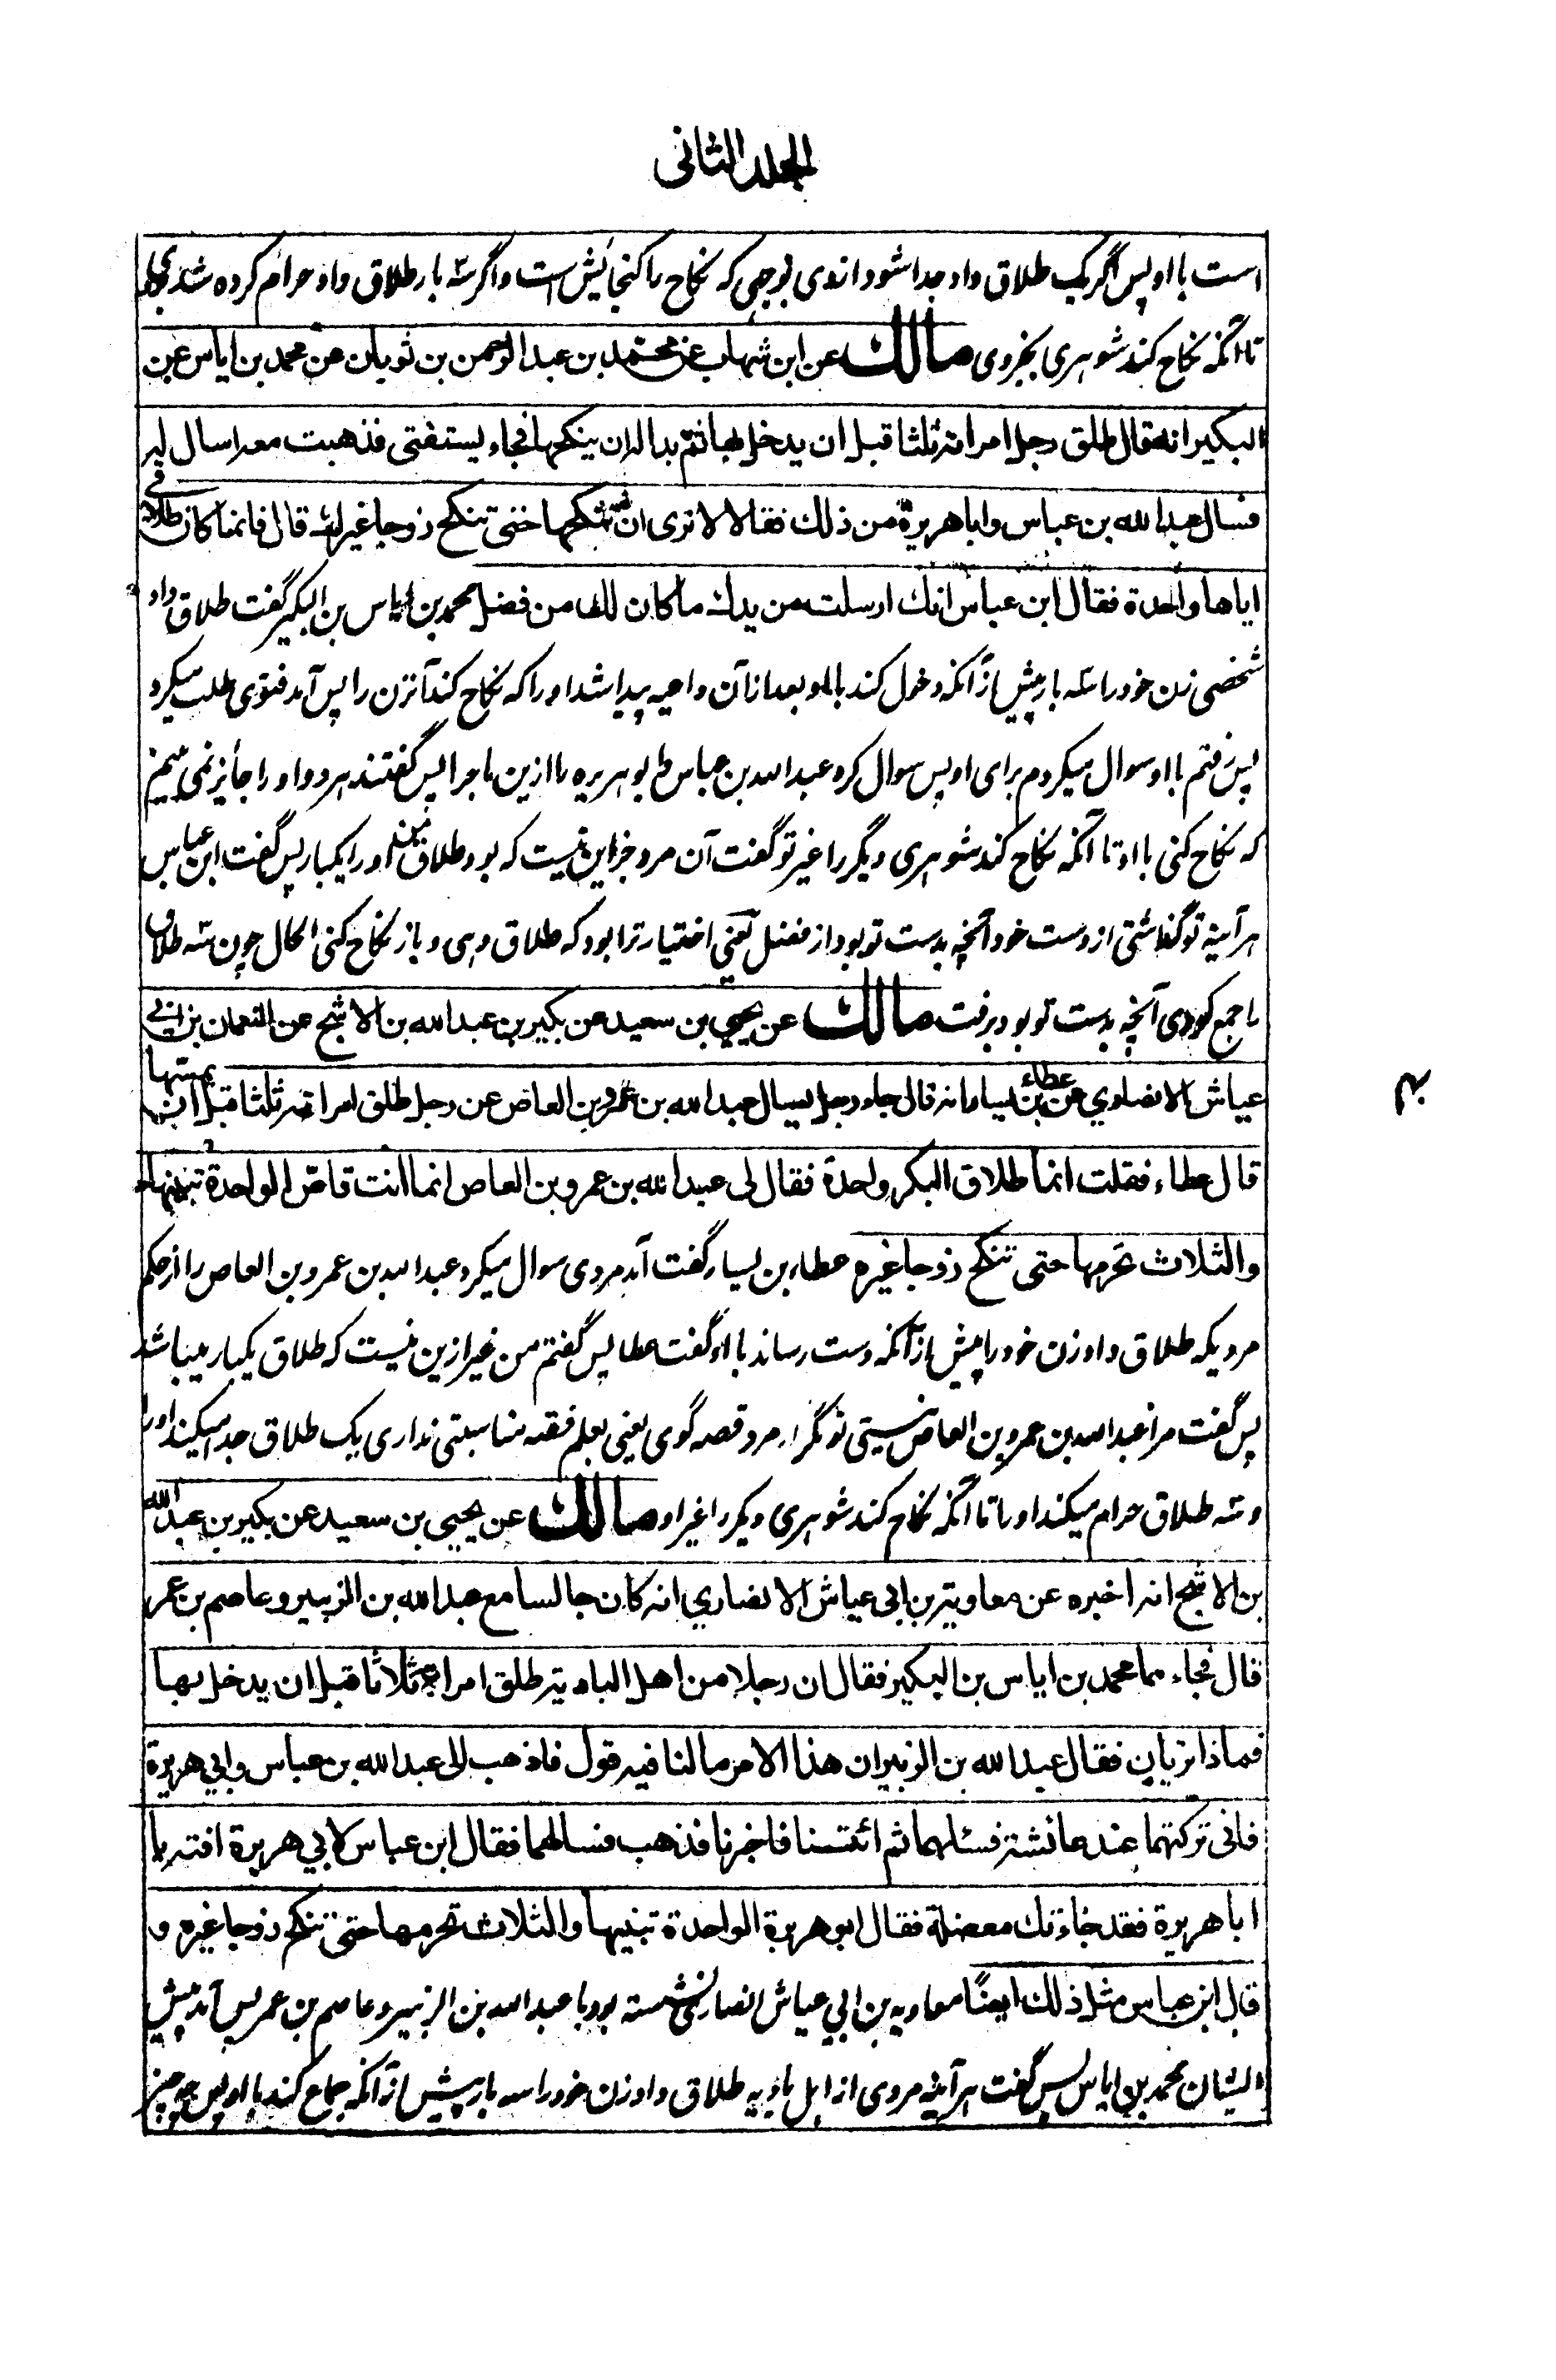 الجلد الثانی
است با او پس اگر یک طلاق داد جدا شود ازوی بوجهی که نکاح را کنجایش است و اگر سه بار طلاق داد حرام کرده شد
تا آنکه نکاح کند شوهری بجزوی مالك عن ابن شهاب عن محمد بن عبد الرحمن بن ثوبان عن محمد بن ایاس عن
البكیر انه قال طلق رجل امراته ثلثا قبل ان یدخل بها ثم بدا له ان ینکحها فجاء یستفتی فذهبت معه اسال له
فسال عبد الله بن عباس و ابا هریرة من ذلك فقالا لا نری ان تنکحها حتی تنکح زوجا غیرك قال فانما کان طلاقی
ایاها واحدة فقال ابن عباس انك ارسلت من یدك ما کان لك من فضل محمد بن ایاس بن البکیر گفت طلاق داد
شخصی زن خود را سه بار پیش از آنکه دخول کند با او بعد از آن داعیه پیدا شد او را که نکاح کند آنزن را پس آمد فتوی طلب میکرد
پس رفتم با او سوال میکردم برای او پس سوال کرد عبد الله بن عباس و ابو هریره را ازین ماجرا پس گفتند هر دو او را جایز نمی بینم
که نکاح کنی با او تا آنکه نکاح کند شوهری دیگر را غیر تو گفت آن مرد جز این نیست که بود طلاق من او را یکبار پس گفت ابن عباس
هر آینه تو گذاشتی از دست خود آنچه بدست تو بود از فضل یعنی اختیار ترا بود که طلاق دهی و باز نکاح کنی الحال چون سه طلاق
را جمع کردی آنچه بدست تو بود برفت مالك عن یحیی بن سعید عن بکیر بن عبد الله بن الاشج عن النعمان بن ابی
عیاش الانصاري عن عطاء بن یسار انه قال جاء رجل یسال عبد الله بن عمرو بن العاص عن رجل طلق امراته ثلثا قبل ان یمسها
قال عطاء فقلت انما طلاق البکر واحدة فقال لی عبد الله بن عمرو بن العاص انما انت قاص الواحدة تبینها
والثلاث تحرمها حتی تنکح زوجا غیره عطاء بن یسار گفت آمد مردی سوال میکرد عبد الله بن عمرو بن العاص را از حکم
مردیکه طلاق داد زن خود را پیش از آنکه دست رساند با او گفت عطا پس گفتم من غیر ازین نیست که طلاق یکبار میباشد
پس گفت مرا عبد الله بن عمرو بن العاص نیستی تو مگر مرد قصه گوی یعنی بعلم فقه مناسبتی نداری یک طلاق جدا میکند او را
و سه طلاق حرام میکند او را تا آنکه نکاح کند شوهری دیگر را غیر او مالك عن یحیی بن سعید عن بکیر بن عبد الله
بن الاشج انه اخبره عن معاویة بن ابی عیاش الانصاري انه کان جالسا مع عبد الله بن الزبیر و عاصم بن عمر
قال فجاءهما محمد بن ایاس بن البکیر فقال ان رجلا من اهل البادیة طلق امراته ثلاثا قبل ان یدخل بها
فماذا تریان فقال عبد الله بن الزبیر ان هذا الامر ما لنا فیه قول فاذهب الی عبد الله بن عباس وابي هریرة
فانی ترکتهما عند عائشة فسئلهما ثم ائتنا فاخبرنا فذهب فسالهما فقال ابن عباس لابي هریرة افته یا
ابا هریرة فقد جاءتك معضلة فقال ابو هریرة الواحدة تبنیها والثلاث تحرمها حتی تنکح زوجا غیره و
قال ابن عباس مثل ذلك ایضًا معاویه بن ابي عیاش انصاری نشسته بود با عبد الله بن الزبیر و عاصم بن عمر پس آمد پیش
ایشان محمد بن ایاس پس گفت هر آینه مردی از اهل بادیه طلاق داد زن خود را سه بار پیش از آنکه جماع کند با او پس چه چیز